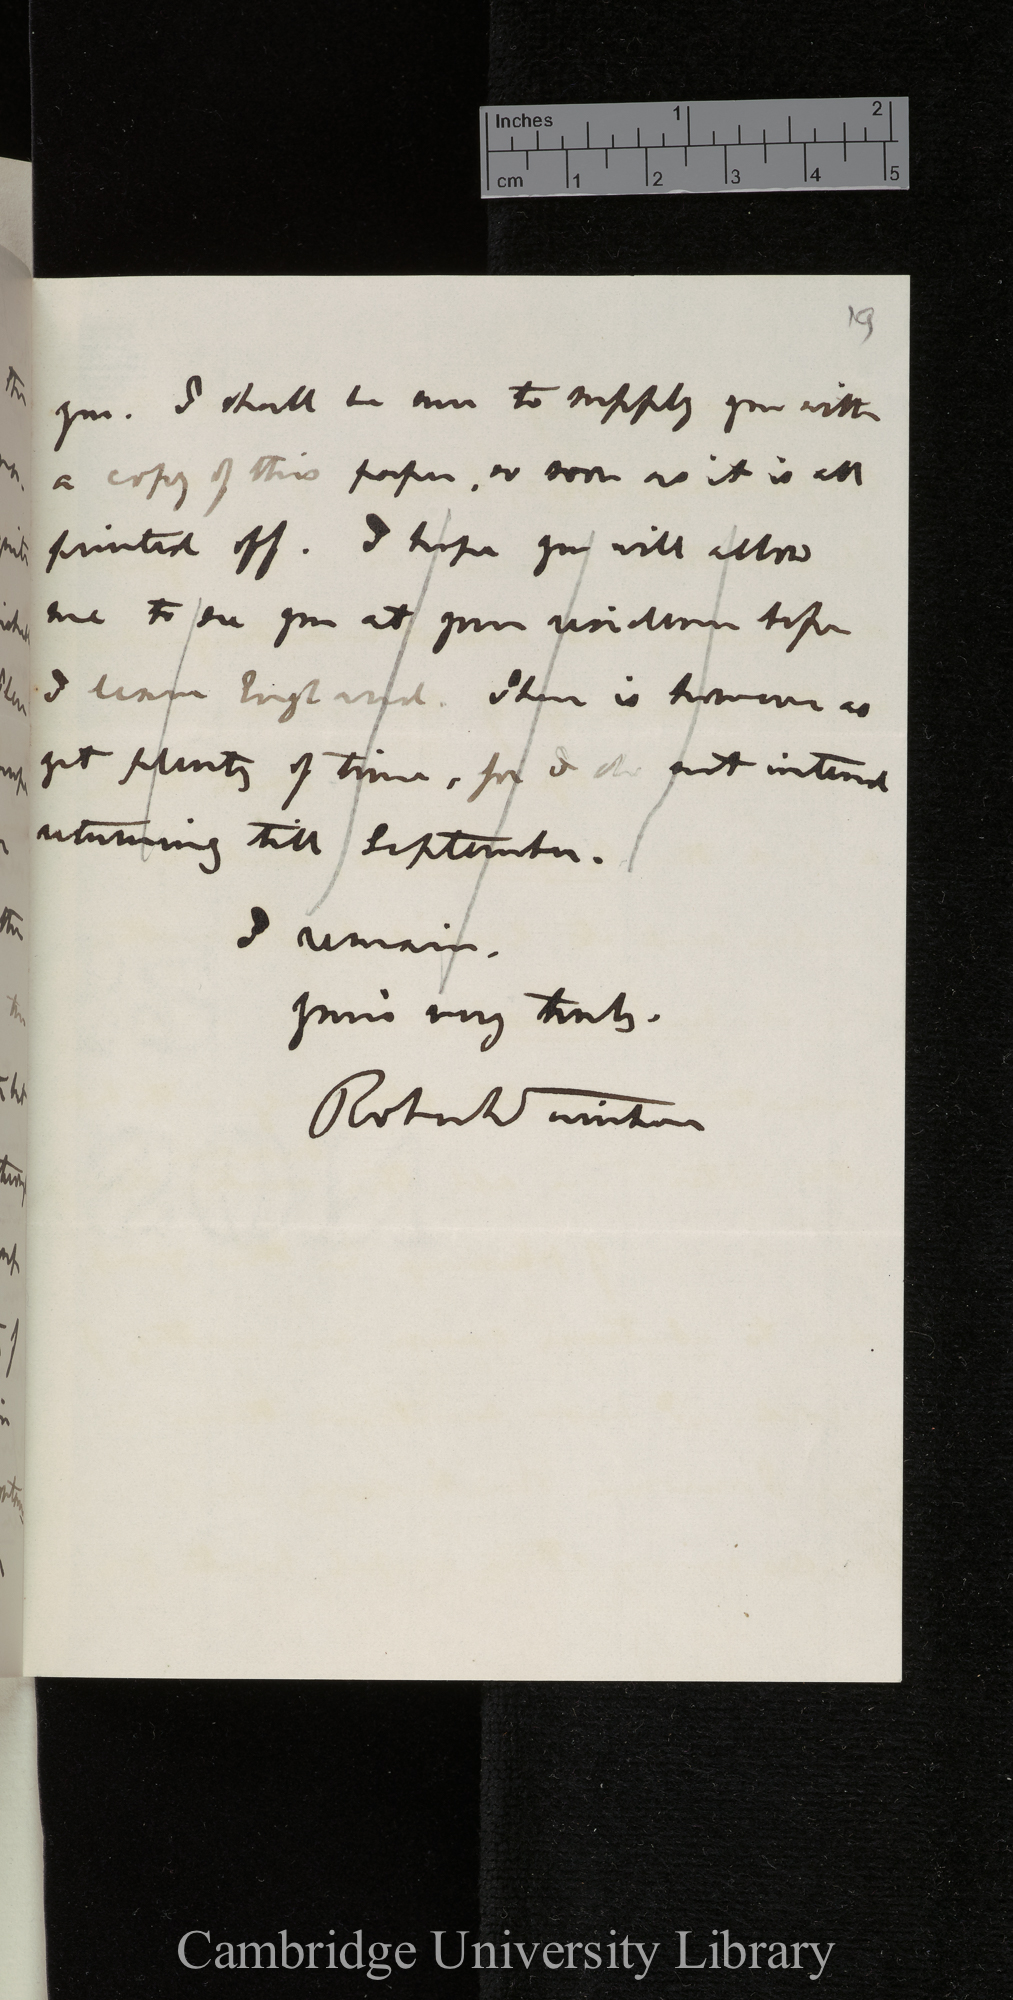 Inches 1 2
cm 1 2 3 4 5
19
you. I shall be sure to supply you with
a copy of this paper, so soon as it is all
printed off. I hope you will allow
me to see you at your residence before
I leave England. There is however as
yet plenty of time, for I do not intend
returning till September.
I remain.
yours very truly.
Robert
Cambridge University Library